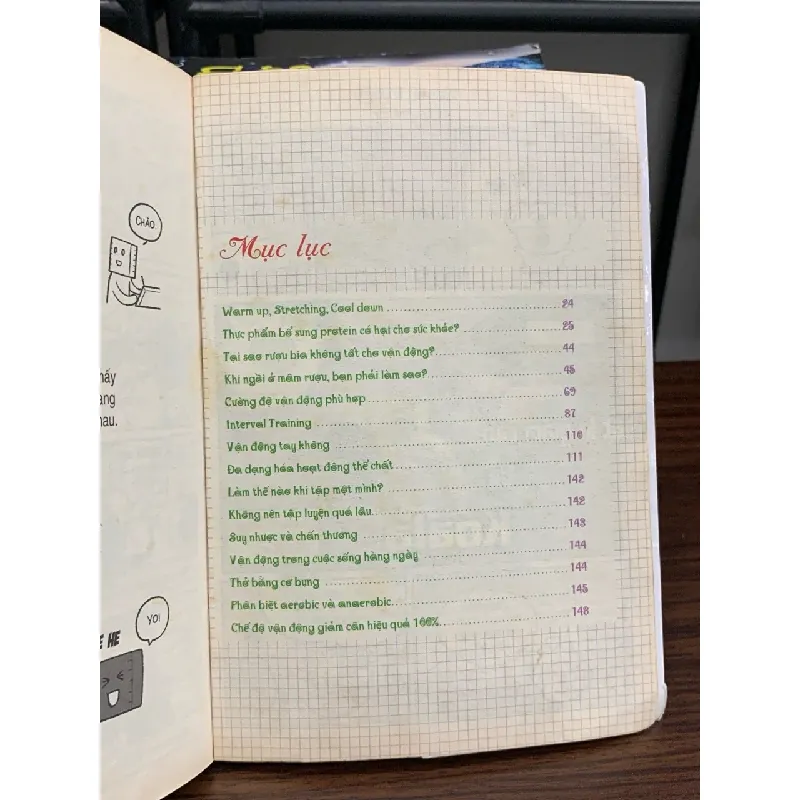 CHÀO
hấy
ang
hau.
HE
YO!
Mục lục
Warm up, Stretching, Cool down 24
Thực phẩm bổ sung protein có hại cho sức khỏe? 25
Tại sao rượu bia không tốt cho vận động? 44
Khi ngồi ở mâm rượu, bạn phải làm sao? 45
Cường độ vận động phù hợp 69
Interval Training 87
Vận động tay không 110
Đa dạng hóa hoạt động thể chất 111
Làm thế nào khi tập một mình? 142
Không nên tập luyện quá lâu 142
Suy nhược và chấn thương 143
Vận động trong cuộc sống hàng ngày 144
Thở bằng cơ bụng 144
Phân biệt aerobic và anaerobic 145
Chế độ vận động giảm cân hiệu quả 100% 148